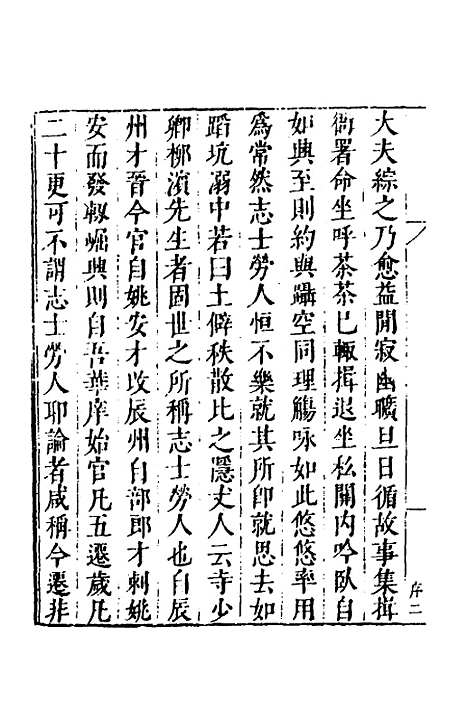 大夫綜之乃愈益閒寂幽曠旦日循故事集揖
衙署命坐呼茶茶已輒揖退坐私閣内吟臥自
如興至則約與躡空同理觴咏如此悠悠率用
爲常然志士勞人恒不樂就其所卽就思去如
蹈坑溺中若曰土僻秩散比之隱丈人云寺少
卿栁濱先生者固世之所稱志士勞人也自辰
州才晉今官自姚安才攻辰州自部郎才刺姚
安而發軔崛興則自吾華庠始官凡五遷歲凡
二十更可不謂志士勞人耶論者咸稱今遷非
序二